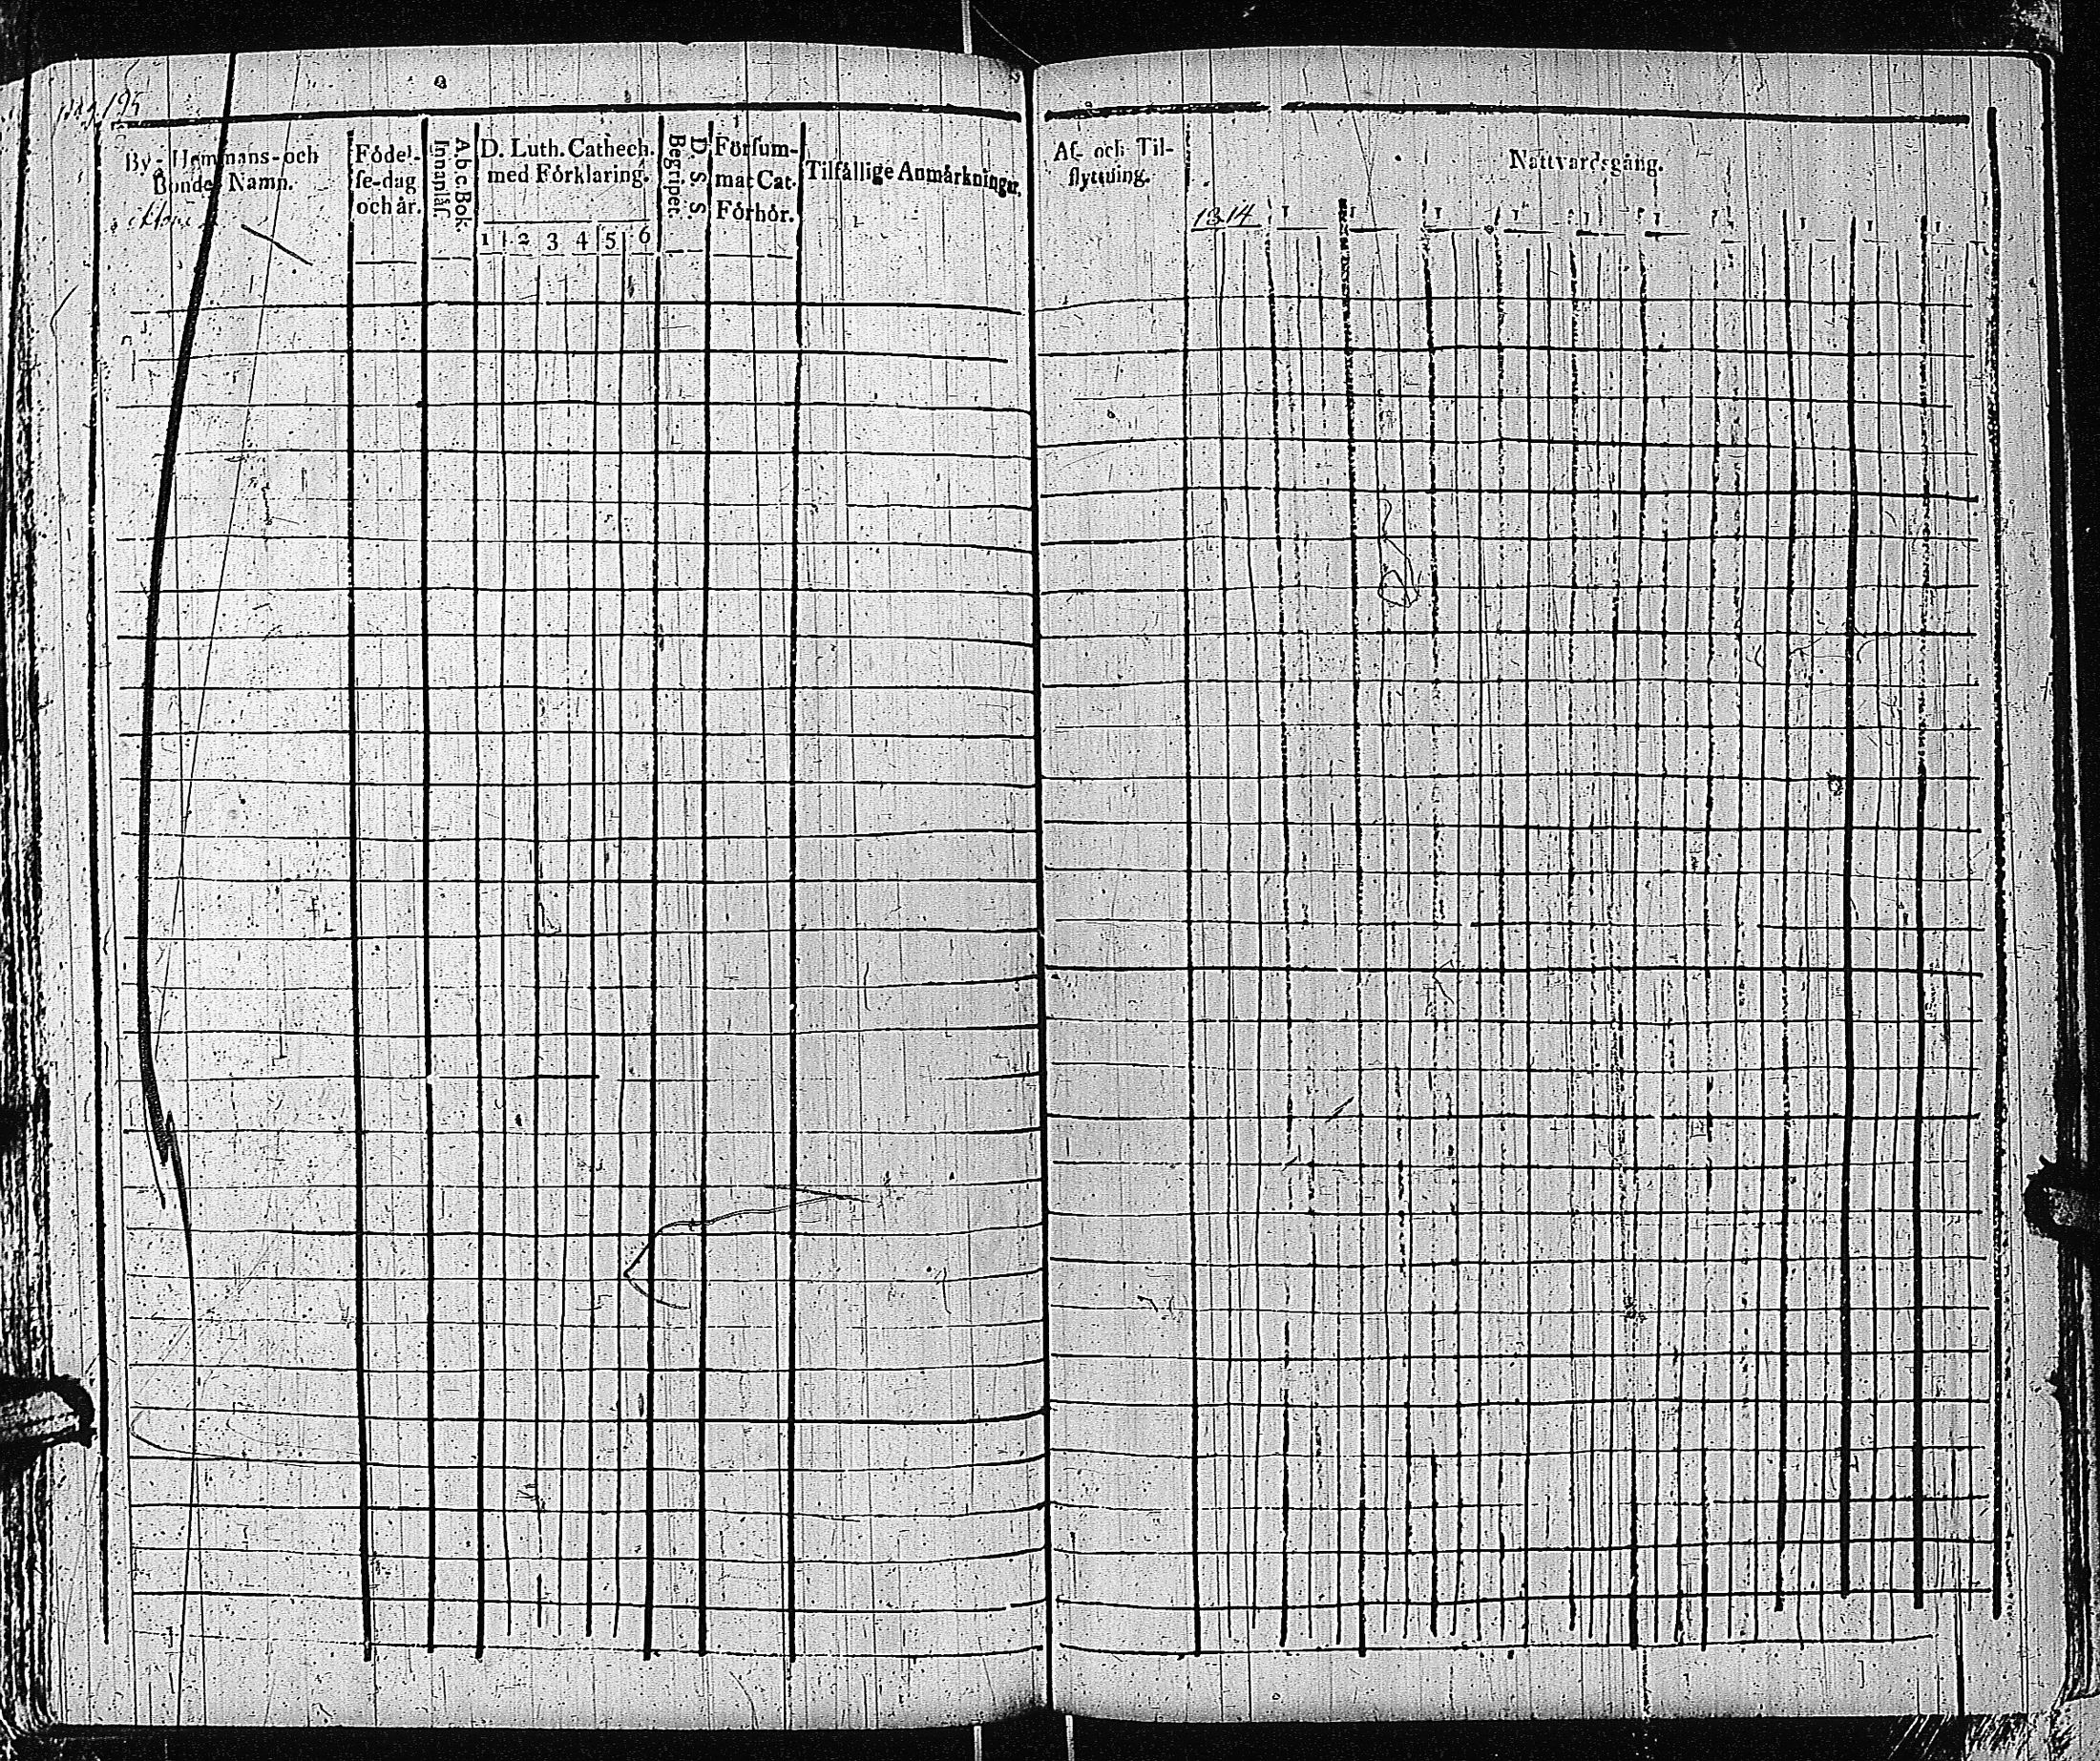 pag. 195
By- Hemmans- och
Bonde Namn.
Födel-
se-dag
och år.
A.b.c.Bok.
Innanläs.
D. Luth. Cathech.
med Förklaring.
1 2 3 4 5 6
D. S. S.
Begripet.
Förſum-
mat Cat.
Förhör.
Tilfällige Anmärkningar.
Af- och Til-
flyttning.
Nattvardsgång.
1814 1 1 1 1 1 1 1 1 1 1